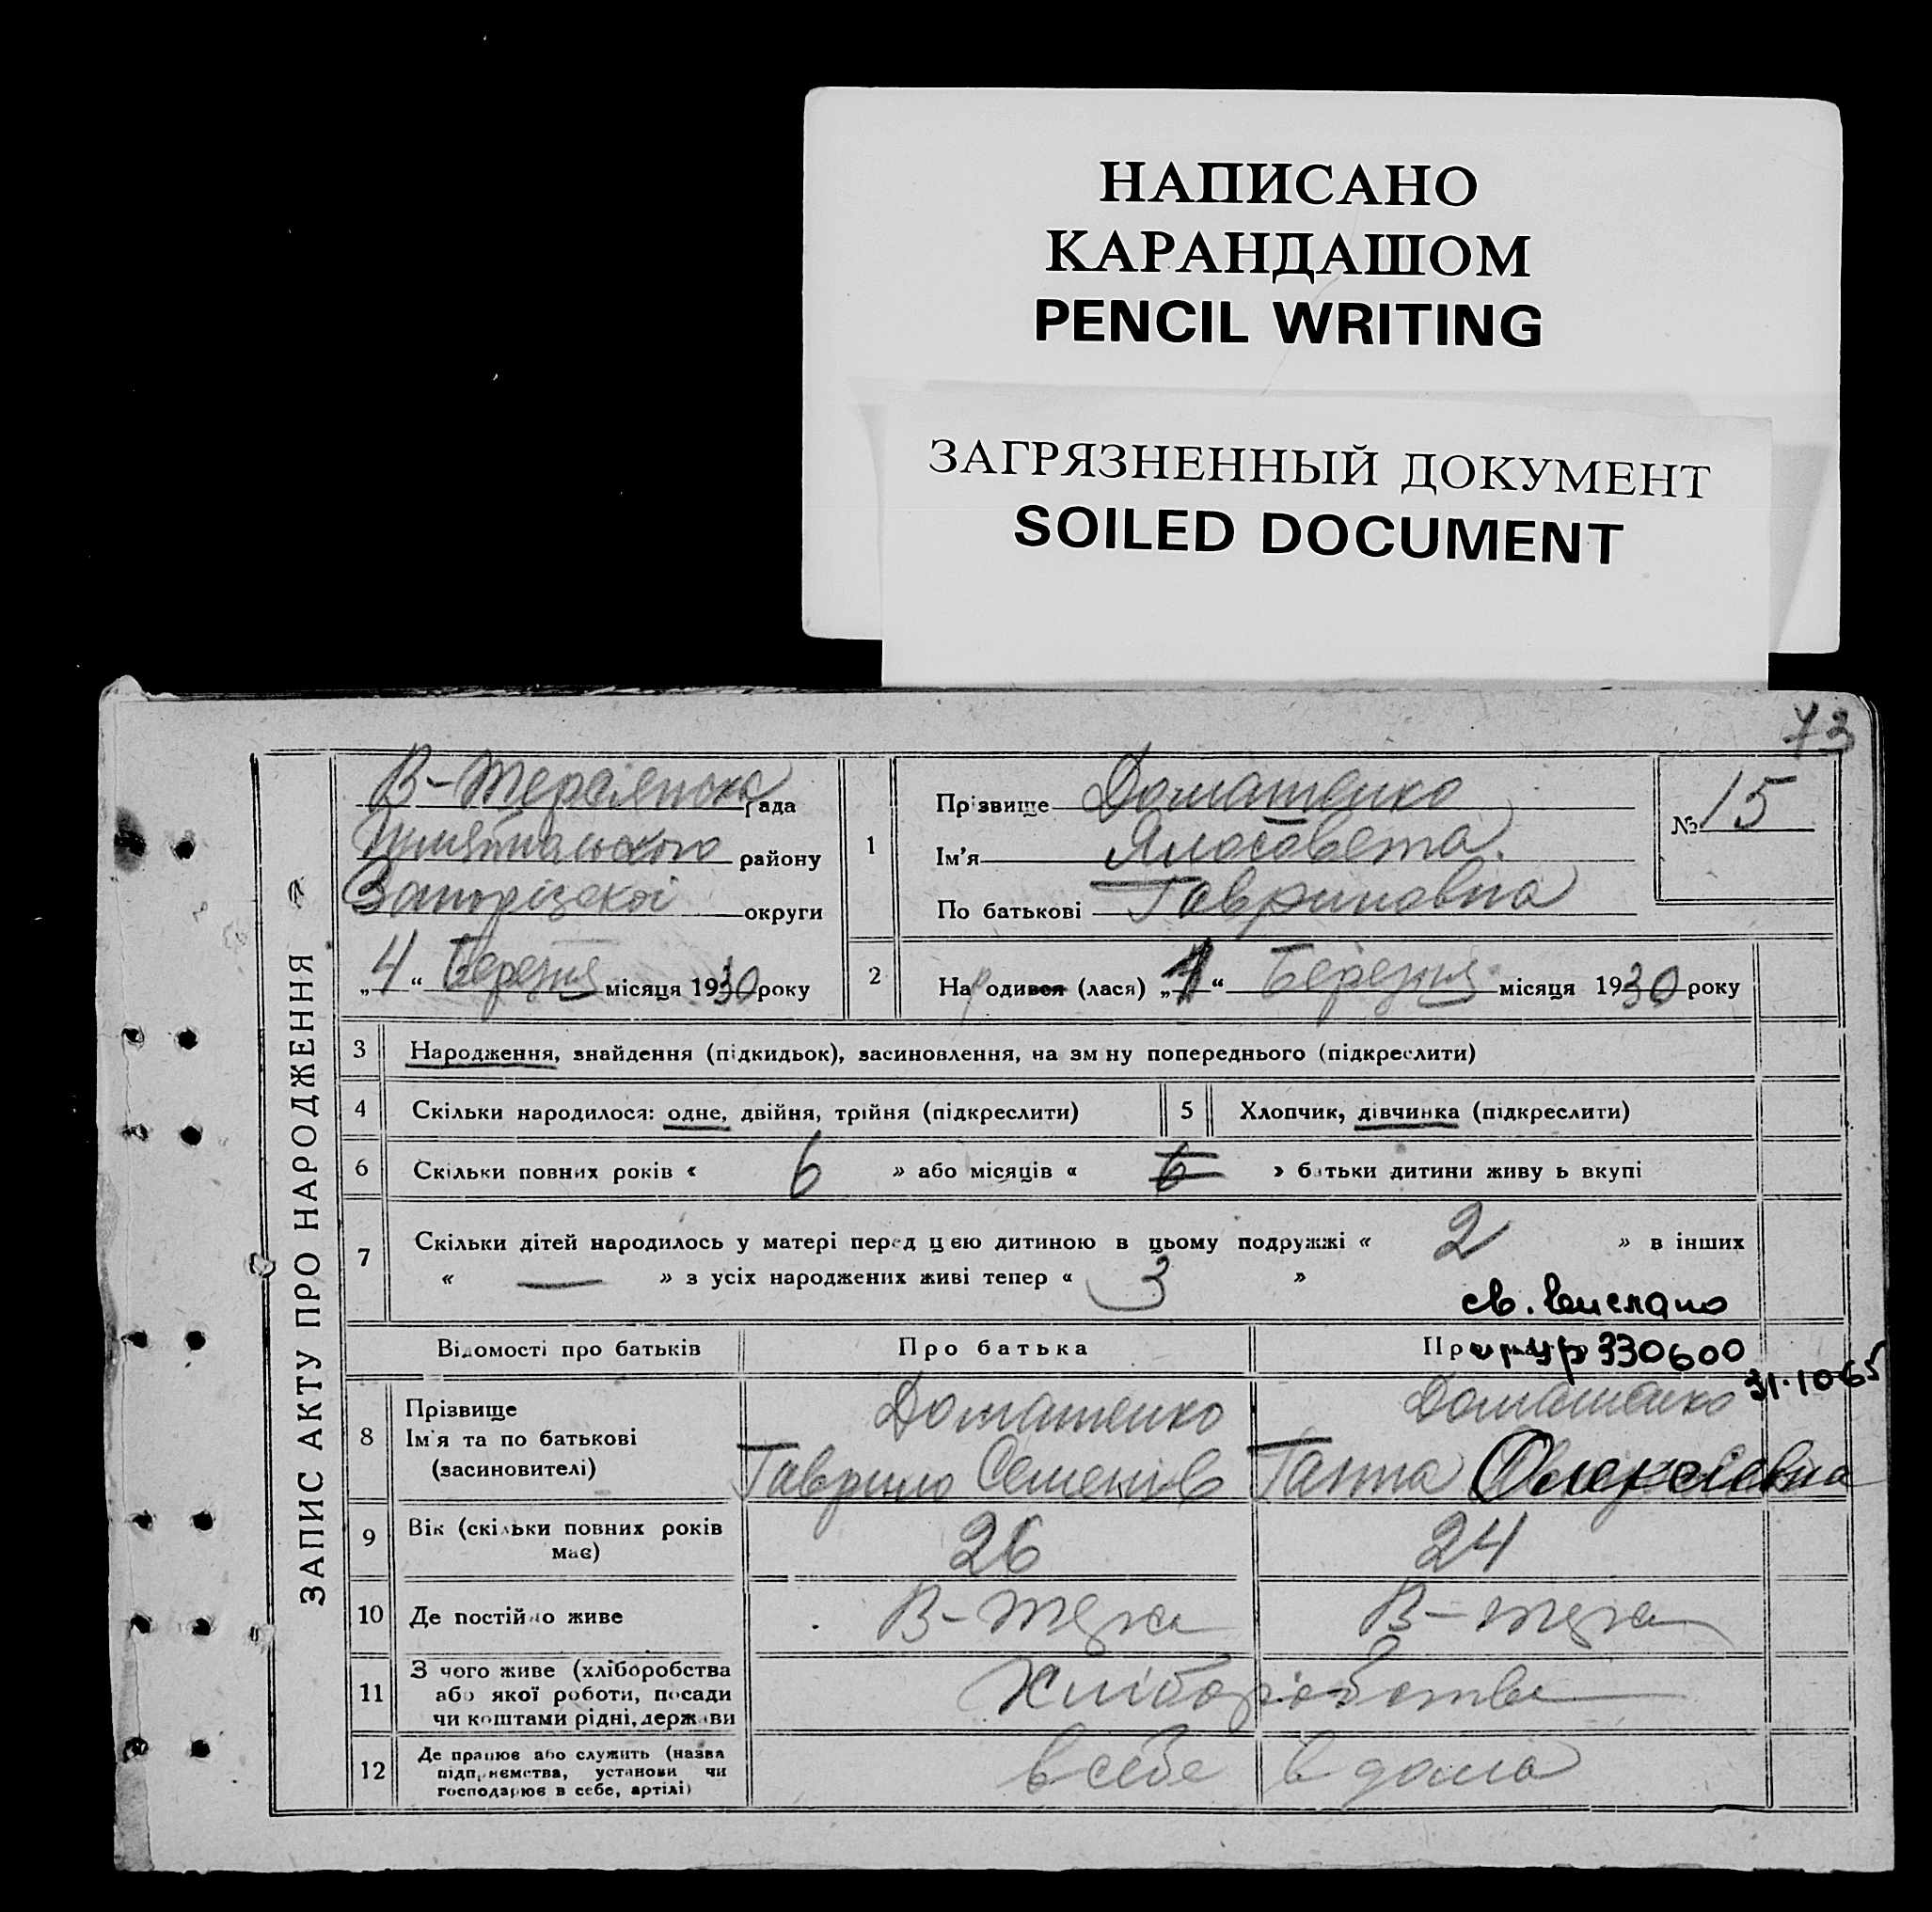 НАПИСАНО
КАРАНДАШОМ
PENCIL WRITING
ЗАГРЯЗНЕННЫЙ ДОКУМЕНТ
SOILED DOCUMENT
73
ЗАПИС АКТУ ПРО НАРОДЖЕННЯ
В-Терсянська рада
району
Запорізскої округи
„4“ Березня місяця 1930 року
1
Прізвище Доматенко
Ім'я
По батькові Гавриловна
№ 15
2
Народився (лася) „1“ Березня місяця 1930 року
3 Народження, знайдення (підкидьок), засиновлення, на зм ну попереднього (підкреслити)
4 Скільки народилося: одне, двійня, трійня (підкреслити) 5 Хлопчик, дівчинка (підкреслити)
6 Скільки повних років « 6 » або місяців « 6 » батьки дитини живу ь вкупі
7 Скільки дітей народилось у матері перед цією дитиною в цьому подружжі « 2 » в інших
« — » з усіх народжених живі тепер « 3 »
св. выслано
Відомості про батьків Про батька
ур 330600
31.10 65
8 Прізвище
Ім'я та по батькові
(засиновителі)
Доматенко
Гаврило Семенів
Доматенко
Ганна Олексіевна
9 Вік (скільки повних років
має)
26 24
10 Де постійно живе В-Терса В-Терса
11 З чого живе (хліборобства
або якої роботи, посади
чи коштами рідні, держави
Хліборобства
12 Де працює або служить (назва
підприємства, установи чи
господарює в себе, артілі)
в себе в дома